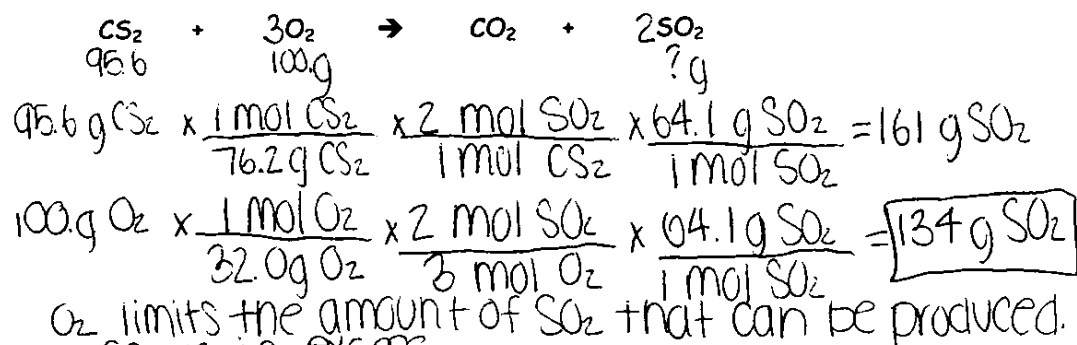 CS₂ + 3O₂ → CO₂ + 2SO₂
95.6 100.g ?g
95.6 g CS₂ x 1 mol CS₂ / 76.2 g CS₂ x 2 mol SO₂ / 1 mol CS₂ x 64.1 g SO₂ / 1 mol SO₂ = 161 g SO₂
100.g O₂ x 1 mol O₂ / 32.0g O₂ x 2 mol SO₂ / 3 mol O₂ x 64.1g SO₂ / 1 mol SO₂ = 134 g SO₂
O₂ limits the amount of SO₂ that can be produced.